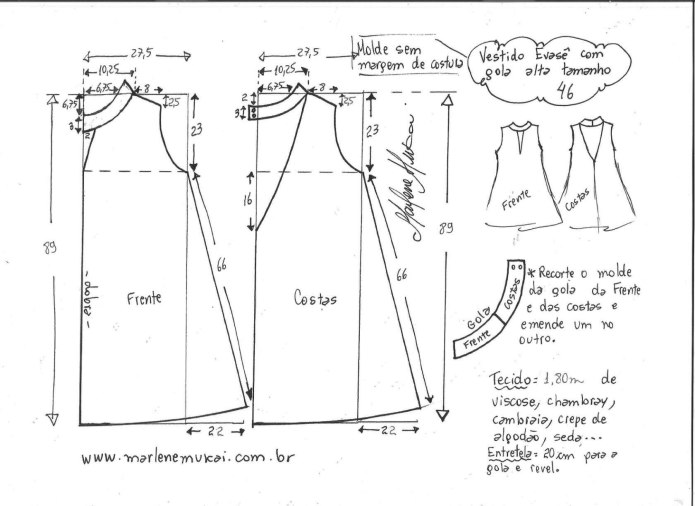 27,5
10,25
6,75
8
2,5
6,75
3
2
23
89
66
Frente
dobra
22
27,5
10,25
6,75
8
2,5
2
3
23
16
89
66
Costas
22
Molde sem
margem de costura
Marlene Mukai
Vestido Evasê com
gola alta tamanho
46
Frente
Costas
Gola
Frente
Costas
* Recorte o molde
da gola da Frente
e das costas e
emende um no
outro.
Tecido = 1,80m de
viscose, chambray,
cambraia, crepe de
algodão, seda,...
Entretela = 20cm para a
gola e revel.
www.marlenemukai.com.br